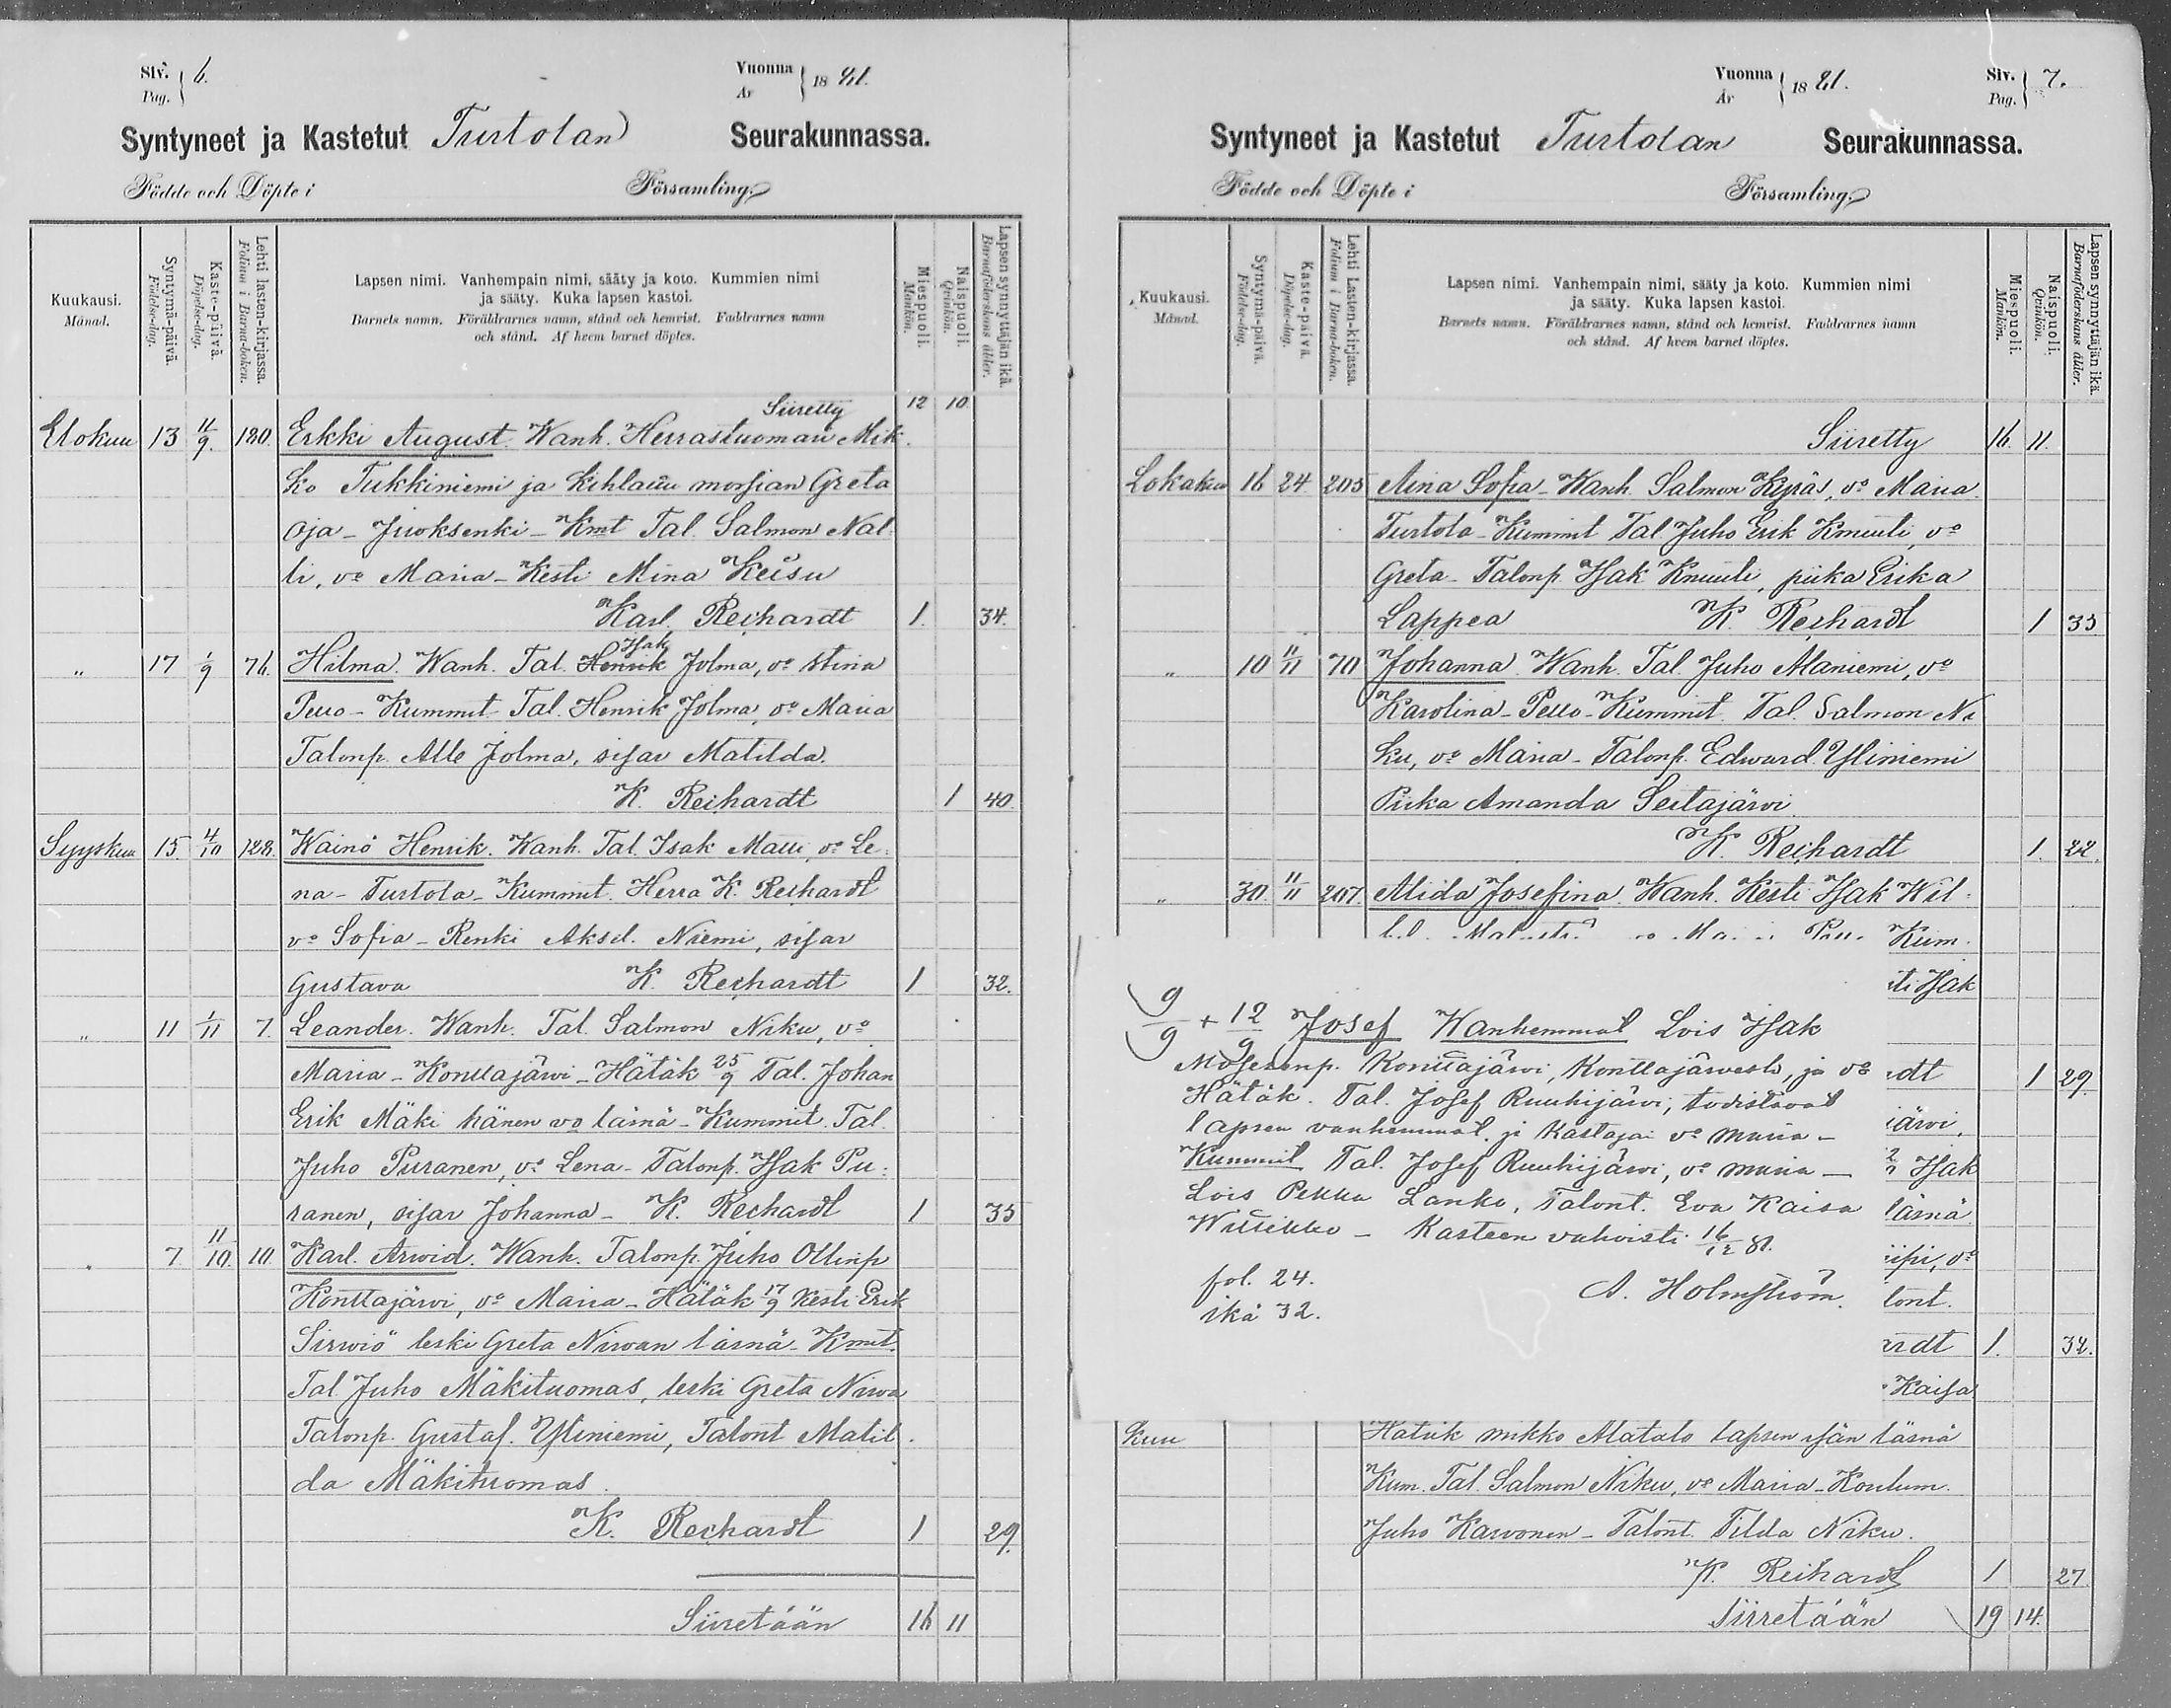 Siv. 6.
Pag.
Vuonna 1881.
År
Syntyneet ja Kastetut Turtolan Seurakunnassa.
Födde och Döpte i Församling.
Kuukausi.
Månad.
Syntymä-päivä.
Födelse-dag.
Kaste-päivä.
Döpelse-dag.
Lehti lasten-kirjassa.
Folium i Barna-boken.
Lapsen nimi. Vanhempain nimi, sääty ja koto. Kummien nimi
ja sääty. Kuka lapsen kastoi.
Barnets namn. Föräldrarnes namn, stånd och hemvist. Faddrarnes namn
och stånd. Af hvem barnet döptes.
Miespuoli.
Mankön.
Naispuoli.
Qvinkön.
Lapsen synnyttäjän ikä.
Barnaföderskans ålder.
Siiretty 12 10
Elokuu 13 11/9. 180. Erkki August. Wanh. Herrastuomari Mik
ko Tukkiniemi ja kihlattu morsian Greta
Oja - Juoksenki - Kmt Tal. Salmon Nal
li, vo Maria - Kesti Mina Keisu
Karl Reihardt 1. 34.
„ 17 1/9 76. Hilma. Wanh. Tal. Henrik Isak Jolma, vo Stina
Pello - Kummit Tal. Henrik Jolma, vo Maria
Talonp. Alle Jolma, sisar Matilda.
K. Reihardt 1 40.
Syyskuu 15 4/10 128. Wainö Henrik. Wanh. Tal. Isak Matti, vo Le
na - Turtola - Kummit. Herra K. Reihardt
vo Sofia - Renki Aksel Niemi, sisar
Gustava K. Reihardt 1 32.
„ 11 1/11 7. Leander. Wanh. Tal. Salmon Niku, vo
Maria - Konttajärwi - Hätäk 25/9 Tal. Johan
Erik Mäki hänen vo läsnä - Kummit. Tal.
Juho Puranen, vo Lena - Talonp. Isak Pu:
ranen, sisar Johanna - K. Reihardt 1 35
„ 7 11/10. 10. Karl Arwid. Wanh. Talonp. Juho Ollinp
Konttajärwi, vo Maria - Hätäk 17/9 Kesti Erik
Sirwiö leski Greta Nirwan läsnä - Kmt.
Tal. Juho Mäkituomas, leski Greta Nirwa
Talonp. Gustaf Yliniemi, Talont Matil
da Mäkituomas.
K. Reihardt 1 29.
Siiretään 16 11
Vuonna 1881.
År
Siv. 7.
Pag.
Syntyneet ja Kastetut Turtolan Seurakunnassa.
Födde och Döpte i Församling.
Kuukausi.
Månad.
Syntymä-päivä.
Födelse-dag.
Kaste-päivä.
Döpelse-dag.
Lehti Lasten-kirjassa.
Folium i Barna-boken.
Lapsen nimi. Vanhempain nimi, sääty ja koto. Kummien nimi
ja sääty. Kuka lapsen kastoi.
Barnets namn. Föräldrarnes namn, stånd och hemvist. Faddrarnes namn
och stånd. Af hvem barnet döptes.
Miespuoli.
Mankön.
Naispuoli.
Qvinkön.
Lapsen synnyttäjän ikä.
Barnaföderskans ålder.
Siiretty 16. 11.
Lokakuu 16 24 205 Aina Sofia - Wanh. Salmon Kypäs, vo Maria
Turtola - Kummit Tal. Juho Erik Knuuti, vo
Greta - Talonp. Isak Knuuti, piika Erika
Lappea K. Reihardt 1 35
„ 10 11/11 70 Johanna. Wanh. Tal. Juho Alaniemi, vo
Karolina - Pello - Kummit. Tal. Salmon Ni
ku, vo Maria - Talonp. Edward Yliniemi
Piika Amanda Seitajärwi
K. Reihardt 1. 22.
„ 30. 11/11 207. Alida Josefina. Wanh. Kesti Isak Wil:
Kum.
sti Isak
9/9 + 12/9 Josef Wanhemmat Lois Isak
Konttajärwi, Konttajärwestä, ja vo
Hätäk. Tal. Josef Ruuhijärwi, todistavat
lapsen vanhemmat, ja Kastajai vo Maria -
Kummit Tal. Josef Ruuhijärwi, vo Maria -
Lois Pekka Lanko, Talont. Eva Kaisa
- Kasteen vahvisti 16/12 81.
fol. 24.
ikä 32.
A. Holmström.
rdt 1 29.
järvi,
Isak
läsnä
vo
lont.
rdt 1. 32.
Kaisa
kuu Hätäk Mikko Alatalo lapsen isän läsnä
Kum. Tal. Salmon Niku, vo Maria - Koulum.
Juho Karvonen - Talont. Tilda Niku.
K. Reihardt 1 27.
Siirretään 19 14.